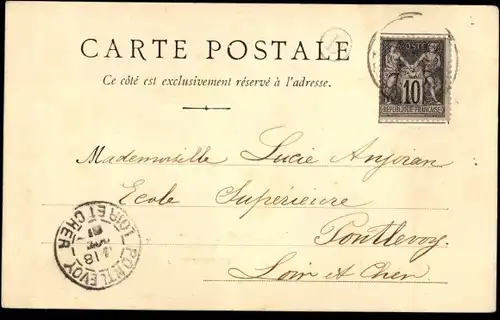 CARTE POSTALE
Ce côté est exclusivement réservé à l'adresse.
POSTE
10
RÉPUBLIQUE FRANÇAISE
Mademoiselle Lucie Anjoran
Ecole Supérieure
Pontlevoy
Loir et Cher
PONTLEVOY
LOIR ET CHER
18